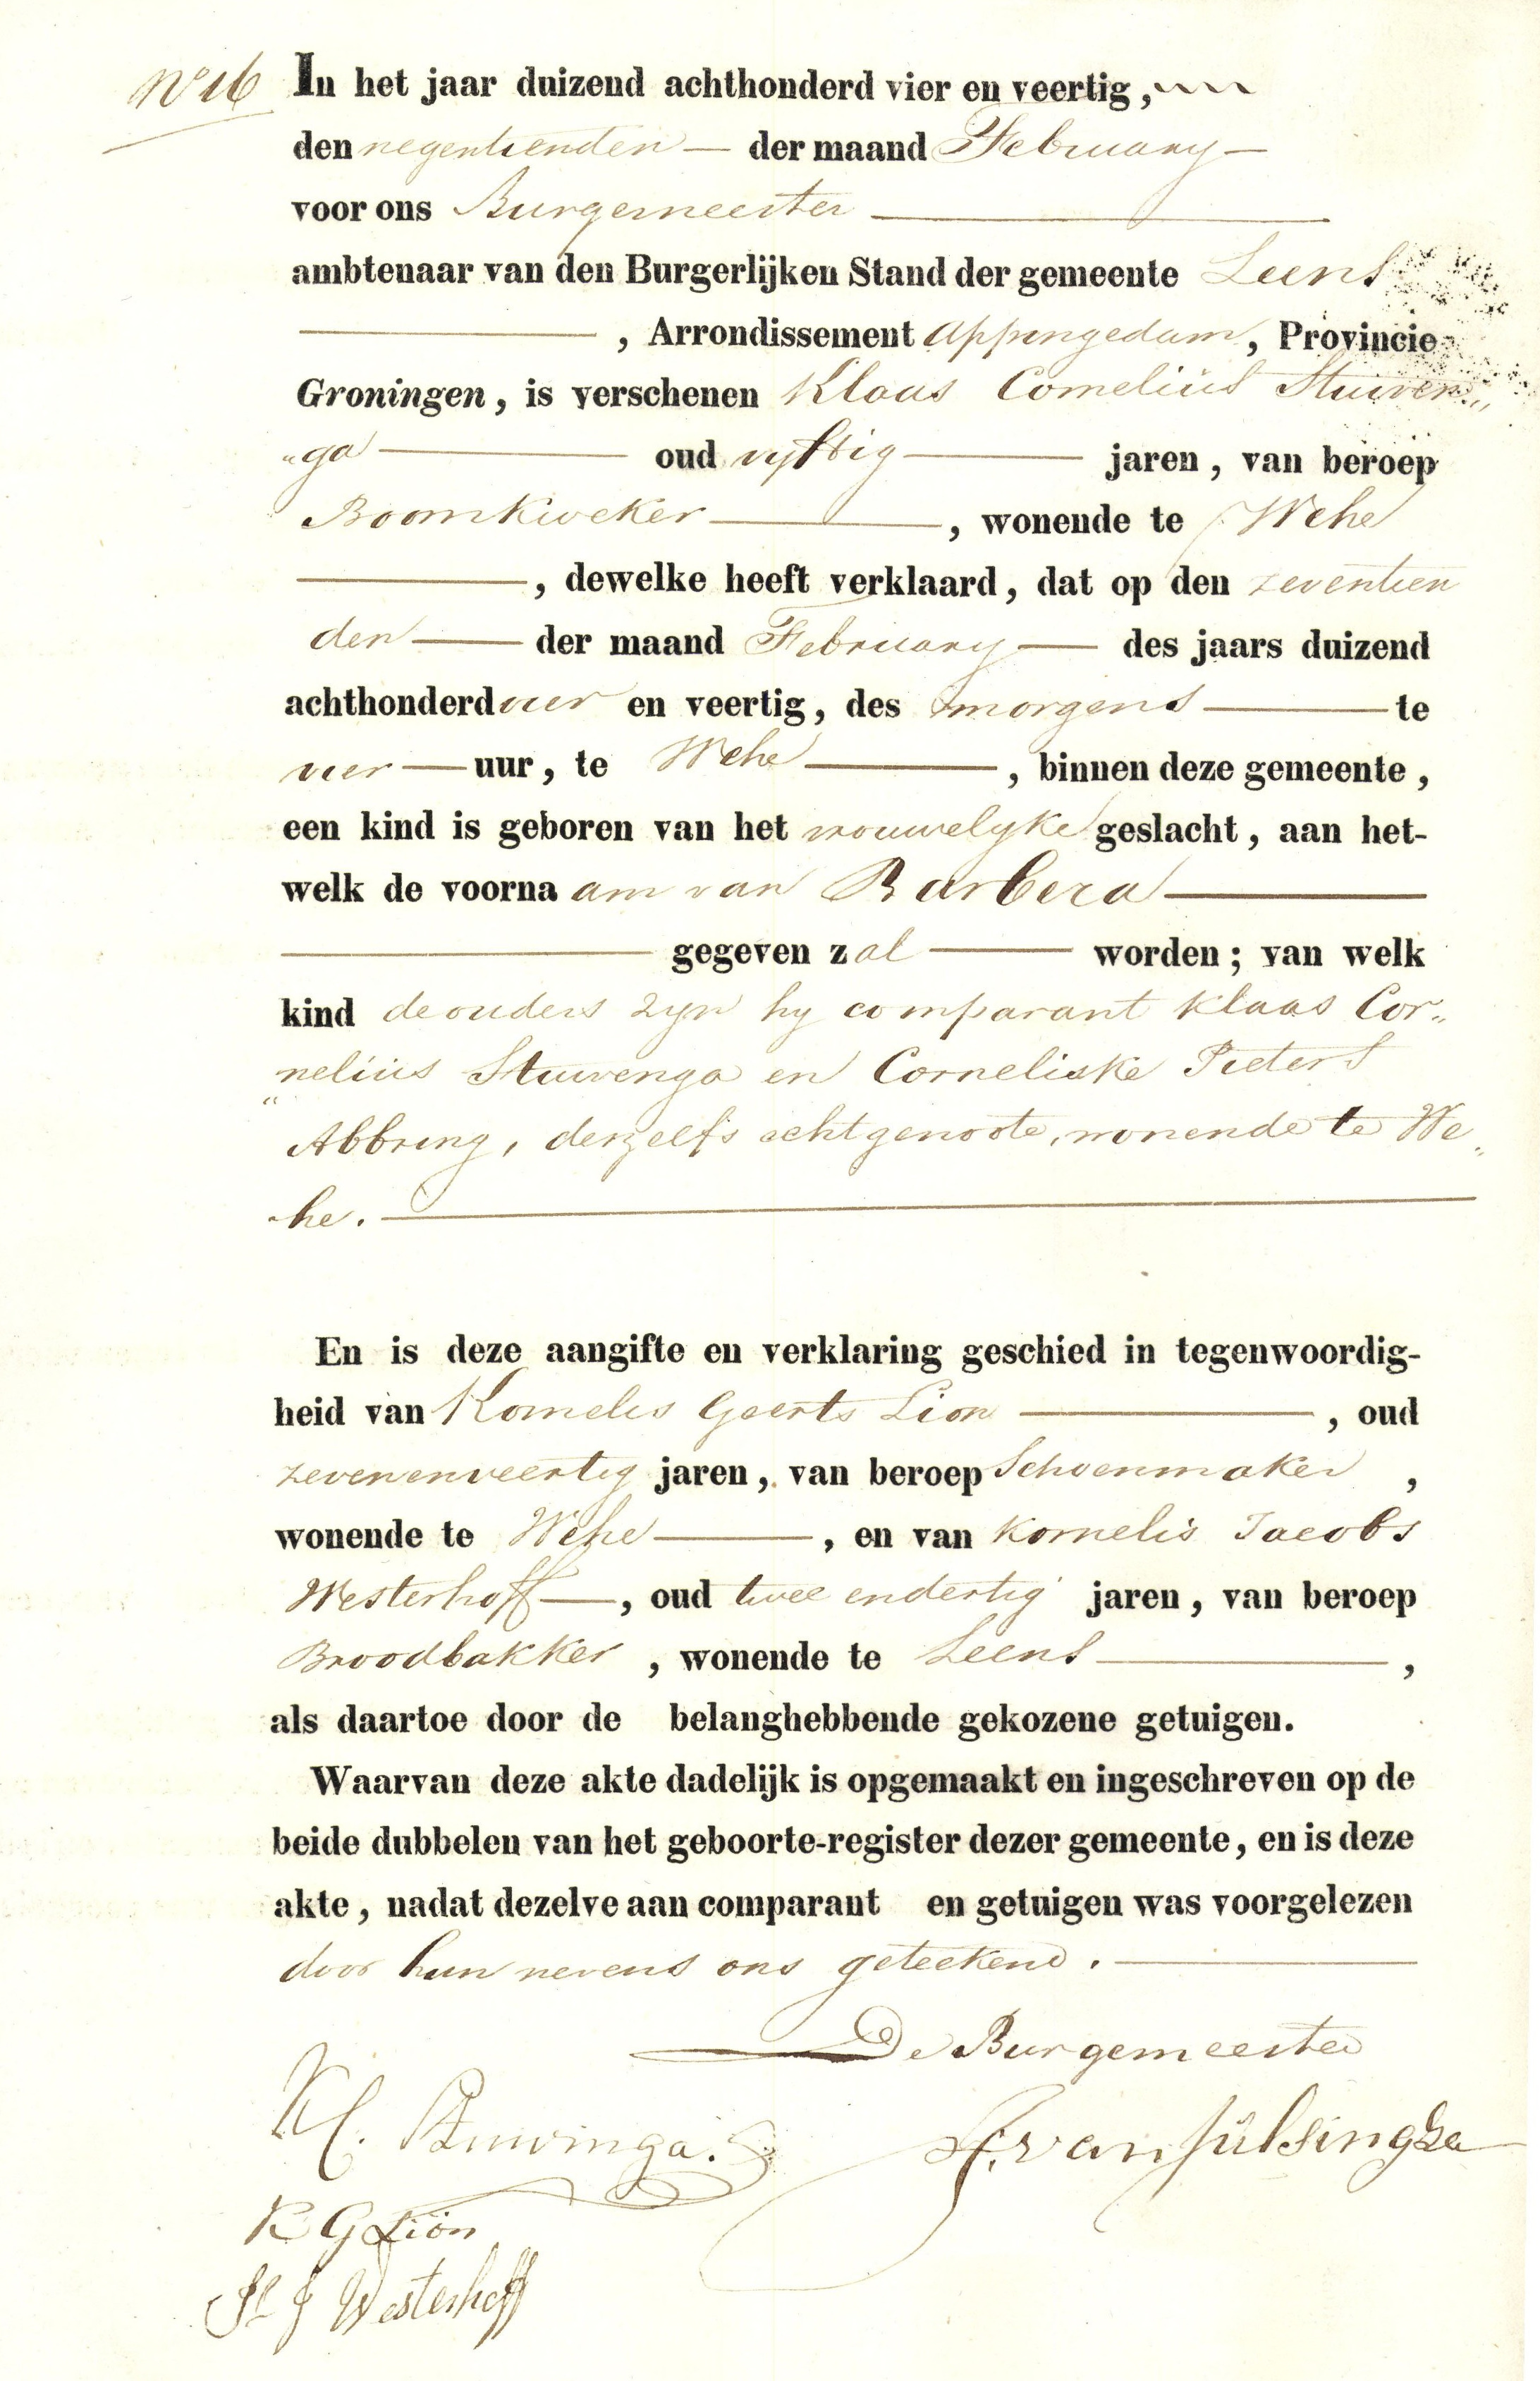 No 16 In het jaar duizend achthonderd vier en veertig,
den negentienden — der maand February —
voor ons Burgemeester
ambtenaar van den Burgerlijken Stand der gemeente Leens
, Arrondissement Appingedam, Provincie
Groningen, is verschenen Klaas Cornelius Stuiven„
„ga — oud vyftig — jaren, van beroep
Boomkweker —, wonende te Wehe
—, dewelke heeft verklaard, dat op den zeventien
den — der maand February — des jaars duizend
achthonderd vier en veertig, des smorgens — te
vier — uur, te Wehe —, binnen deze gemeente,
een kind is geboren van het vrouwelyke geslacht, aan het-
welk de voornaam van Barbera —
— gegeven zal — worden; van welk
kind de ouders zyn hy comparant Klaas Cor„
„nelius Stuivenga en Corneliske Pieters
Abbring, deszelfs echtgenoote, wonende te We„
„he. —
En is deze aangifte en verklaring geschied in tegenwoordig-
heid van Kornelis Geerts Lion —, oud
zevenenveertig jaren, van beroep Schoenmaker,
wonende te Wehe —, en van Kornelis Jacobs
Westerhoff —, oud twee endertig jaren, van beroep
Broodbakker, wonende te Leens —,
als daartoe door de belanghebbende gekozene getuigen.
Waarvan deze akte dadelijk is opgemaakt en ingeschreven op de
beide dubbelen van het geboorte-register dezer gemeente, en is deze
akte, nadat dezelve aan comparant en getuigen was voorgelezen
door hun nevens ons geteekend. —
De Burgemeester
K C. Stuivinga.
van Julsingha
K G Lion
K J Westerhoff